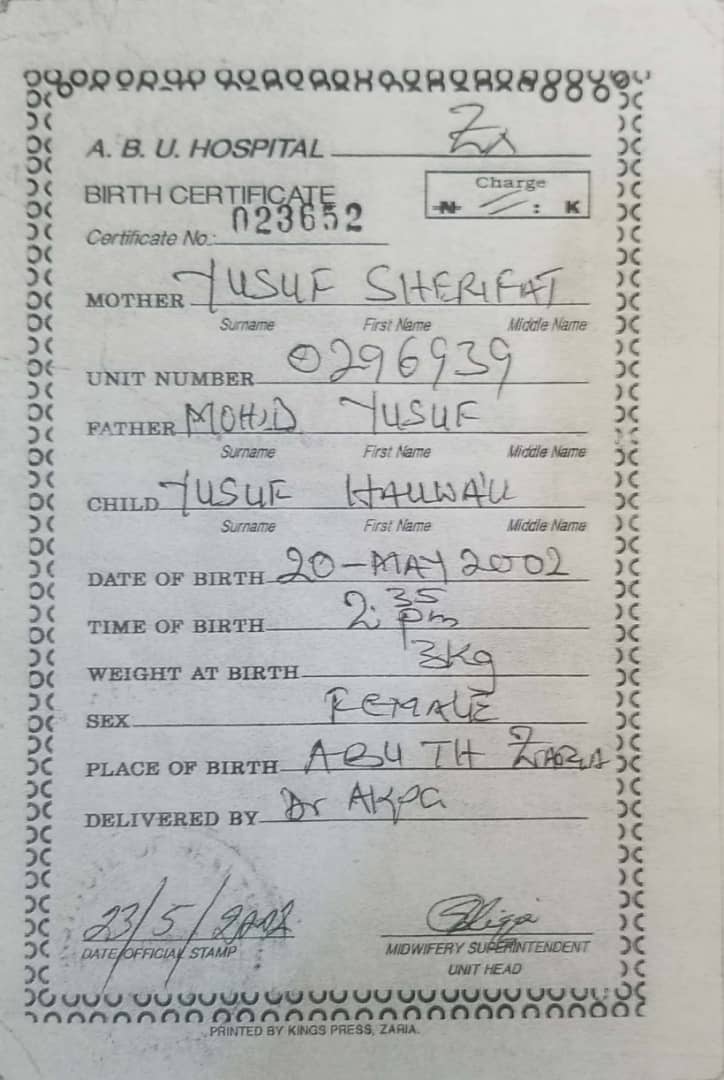 A. B. U. HOSPITAL Za
BIRTH CERTIFICATE
Charge
N : K
Certificate No.: 023652
MOTHER YUSUF SHERIFAT
Surname First Name Middle Name
UNIT NUMBER 0296939
FATHER MOHD YUSUF
Surname First Name Middle Name
CHILD YUSUF HAUWA'U
Surname First Name Middle Name
DATE OF BIRTH 20-MAY 2002
TIME OF BIRTH 2:35 pm
WEIGHT AT BIRTH 3kg
SEX FEMALE
PLACE OF BIRTH ABU TH ZARIA
DELIVERED BY Dr AKPA
23/5/2002
DATE/OFFICIAL STAMP
MIDWIFERY SUPERINTENDENT
UNIT HEAD
PRINTED BY KINGS PRESS, ZARIA.